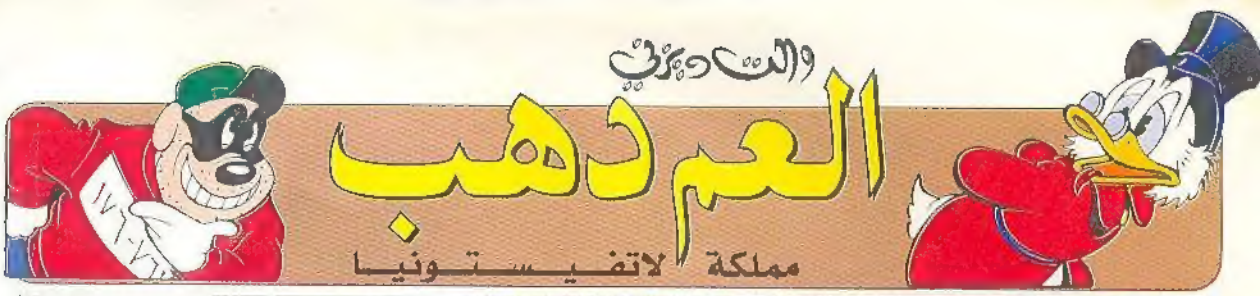 والت ديزني
العم دهب
مملكة لاتفيستونيا